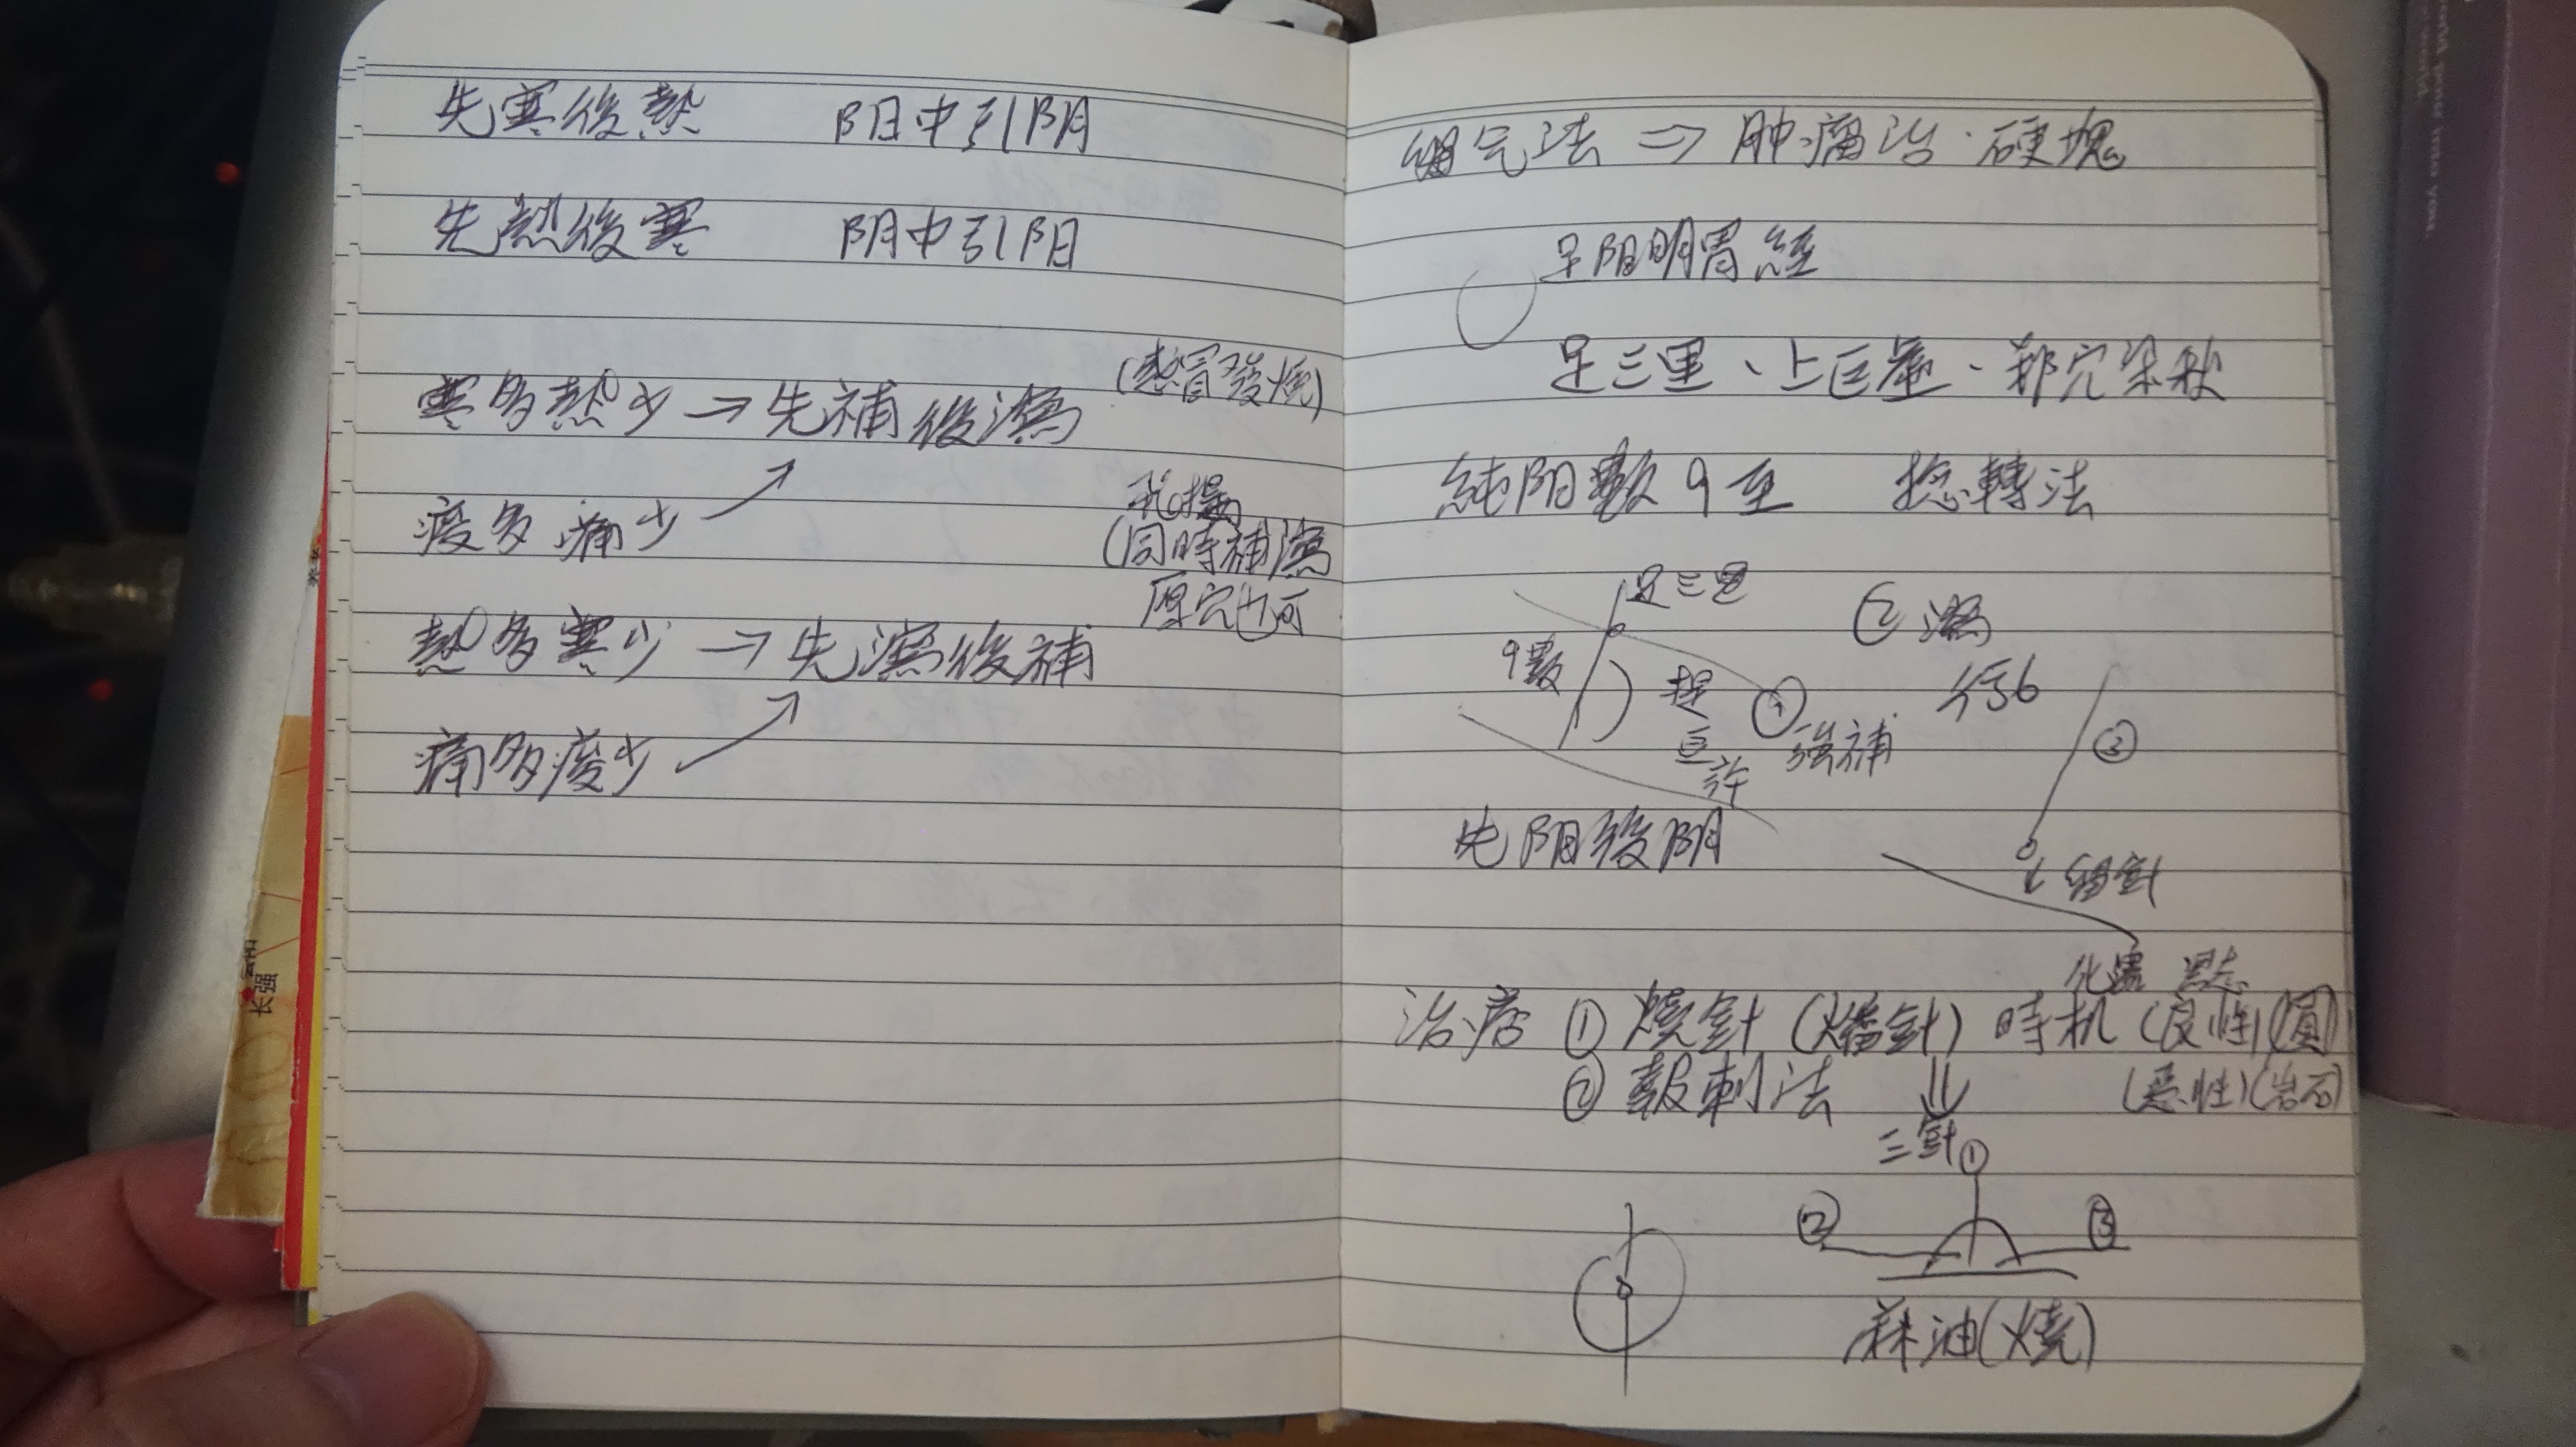 先寒後熱 阳中引阴
先熱後寒 阴中引阳
寒多熱少→先補後瀉
(感冒發燒)
痠多痛少
(同時補瀉
原穴也可
熱多寒少→先瀉後補
痛多痠少
长强
气法⇒肿瘤治·硬塊
足阳明胃經
足三里、上巨虛·郄穴梁秋
純阳數9至 捻轉法
足三里
9數
提
豆
許
強補
② 瀉
行6
③
先阳後阴
留針
治疗 ①燒針(燔針) 時机 (良性)(圓)
②報刺法 ⇓ (惡性)(岩石)
三針①
② ③
麻油(燒)
world power